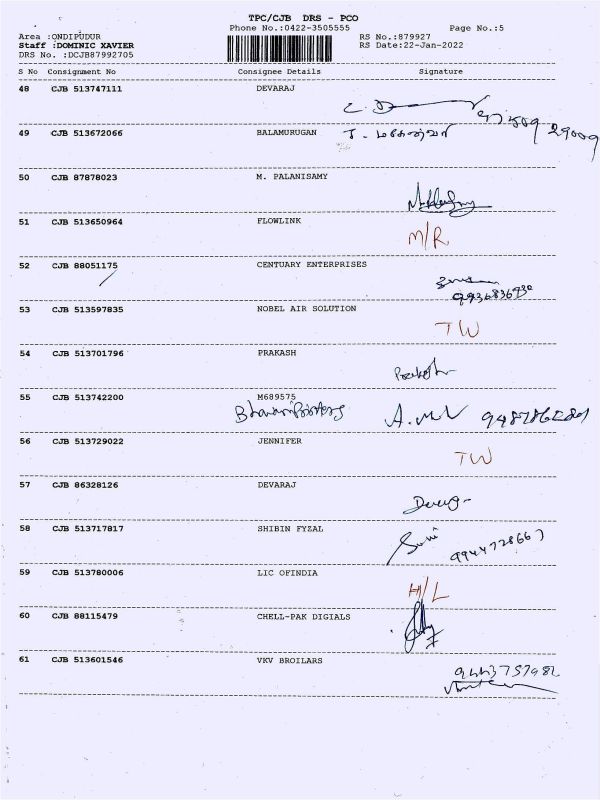 TPC/CJB DRS - PCO
Phone No.:0422-3505555 Page No.:5
Area :ONDIPUDUR RS No.:879927
Staff :DOMINIC XAVIER RS Date:22-Jan-2022
DRS No. :DCJB87992705
S No Consignment No Consignee Details Signature
48 CJB 513747111 DEVARAJ
49 CJB 513672066 BALAMURUGAN
50 CJB 87878023 M. PALANISAMY
51 CJB 513650964 FLOWLINK
M/R
52 CJB 88051175 CENTUARY ENTERPRISES
53 CJB 513597835 NOBEL AIR SOLUTION
TW
54 CJB 513701796 PRAKASH
55 CJB 513742200 M689575
A.
56 CJB 513729022 JENNIFER
TW
57 CJB 86328126 DEVARAJ
58 CJB 513717817 SHIBIN FYZAL
59 CJB 513780006 LIC OFINDIA
H/L
60 CJB 88115479 CHELL-PAK DIGIALS
61 CJB 513601546 VKV BROILARS